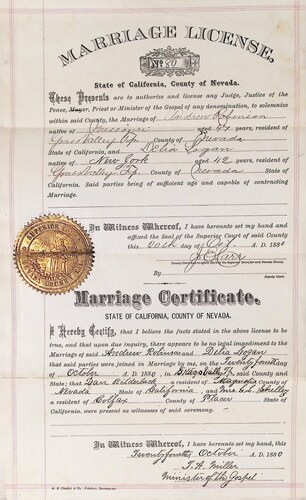 MARRIAGE LICENSE,
No 80
State of California, County of Nevada.
These Presents are to authorize and license any Judge, Justice of the
Peace, Mayor, Priest or Minister of the Gospel of any denomination, to solemnize
within said County, the Marriage of Andrew
native of Missouri aged resident of
Grass Valley Tp. County of Nevada
State of California, and Delia Logan
native of New York aged 42 years, resident of
Grass Valley Tp. County of Nevada State of
California. Said parties being of sufficient age and capable of contracting
Marriage.
In Witness Whereof, I have hereunto set my hand and
affixed the Seal of the Superior Court of said County
this 20th day of Oct. A. D. 1880
By
Deputy Clerk.
Marriage Certificate.
STATE OF CALIFORNIA, COUNTY OF NEVADA.
I Hereby Certify, that I believe the facts stated in the above license to be
true, and that upon due inquiry, there appears to be no legal impediment to the
Marriage of said Andrew and Delia Logan
that said parties were joined in Marriage by me, on the Twentyfourth day
of October A. D. 1880, in Grass Valley Tp. said County and
State; that Dan Wilderback a resident of County
Nevada State of California, and Mrs. Shelley
a resident of Colfax Placer County, State of
California, were present as witnesses of said ceremony.
In Witness Whereof, I have hereunto set my hand, this
Twentyfourth October A. D. 1880
J. A. Miller
Minister of the Gospel